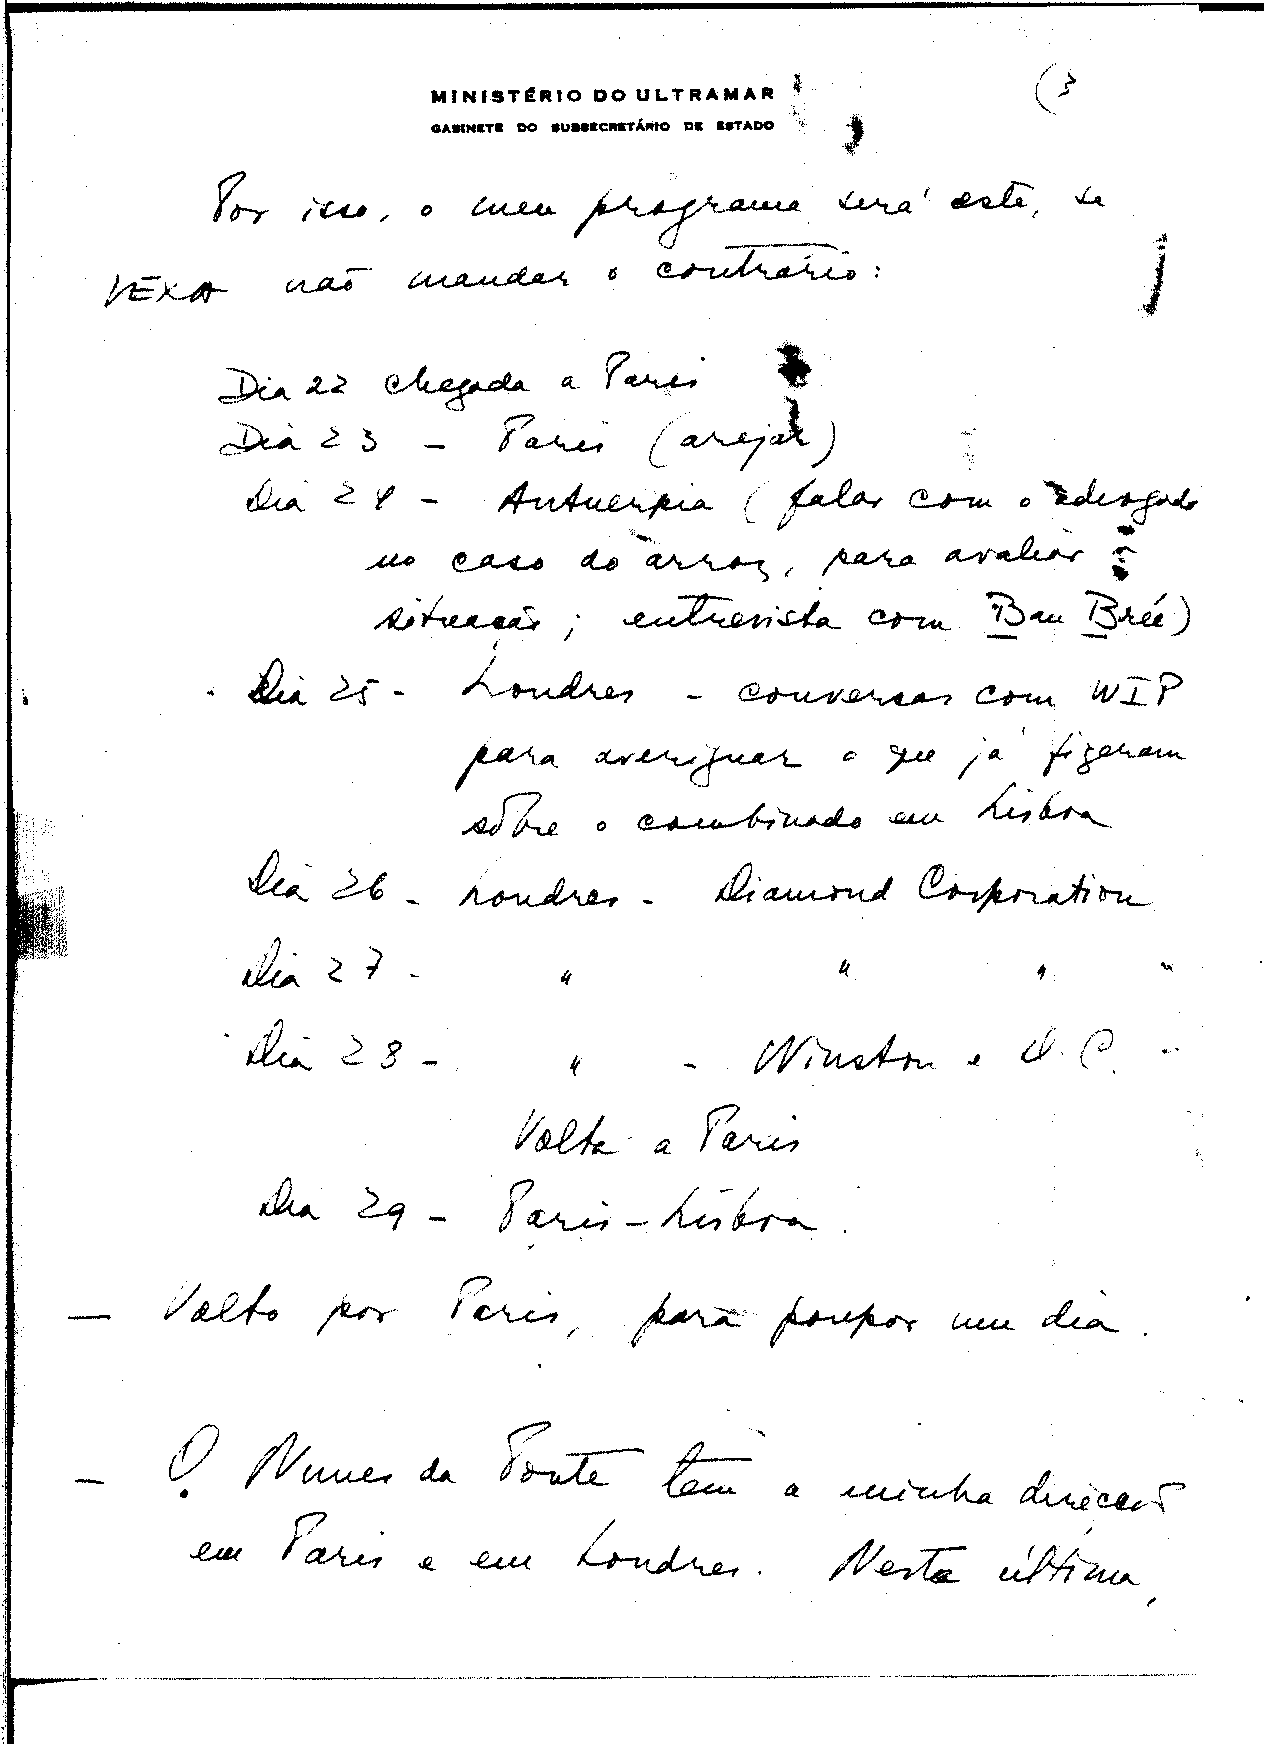 MINISTÉRIO DO ULTRAMAR
GABINETE DO SUBSECRETÁRIO DE ESTADO
(3
Por isso, o meu programa será este, se
VEXA não mandar o contrário:
Dia 22 chegada a Paris
Dia 23 - Paris (arejar)
Dia 24 - Antuerpia (falar com o advogado
no caso do arroz, para avaliar a
situação; entrevista com Bau Brée)
Dia 25 - Londres - conversas com WIP
para averiguar o que já fizeram
sôbre o combinado em Lisboa
Dia 26 - Londres - Diamond Corporation
Dia 27 - " " " "
Dia 28 - " - Winston e D. C. -
Volta a Paris
Dia 29 - Paris - Lisboa.
— Volto por Paris, para poupar um dia.
— O Nunes da Ponte tem a minha direcção
em Paris e em Londres. Nesta última,